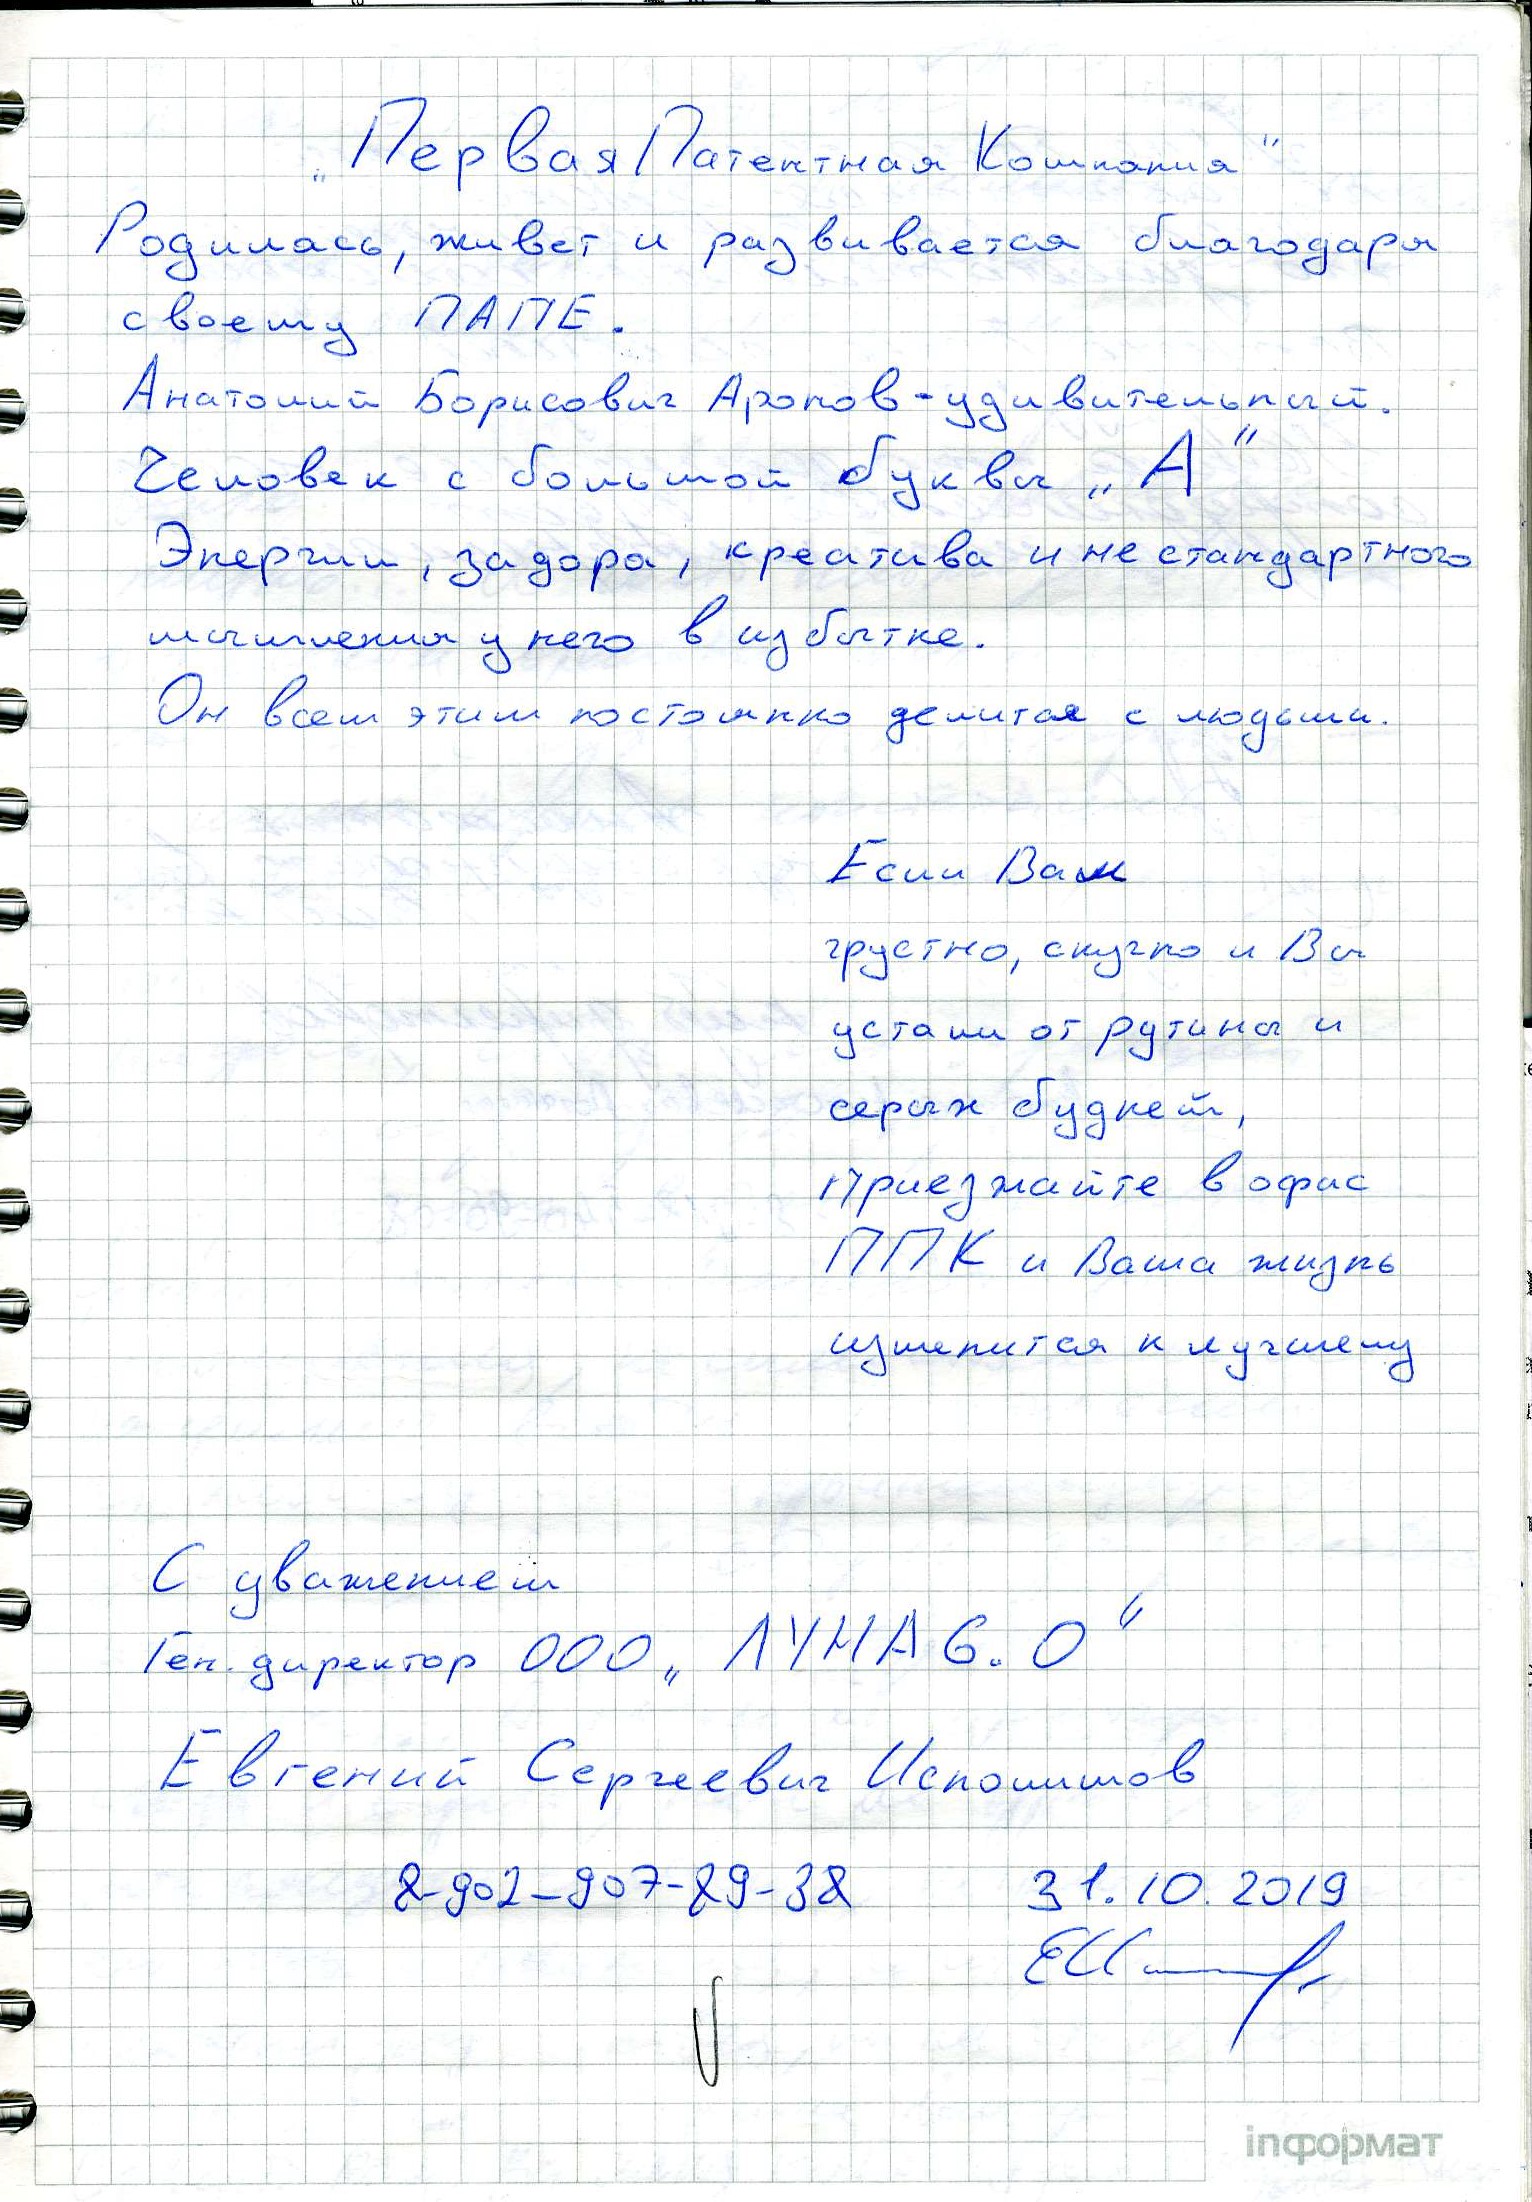 „Первая Патентная Компания"
Родилась, живет и развивается благодаря
своему ПАПЕ.
Анатолий Борисович Аропов - удивительный.
Человек с большой буквы „А"
Энергии, задора, креатива и не стандартного
мышления у него в избытке.
Он всем этим постоянно делится с людьми.
Если Вам
грустно, скучно и Вы
устали от рутины и
серых будней,
Приезжайте в офис
ППК и Ваша жизнь
изменится к лучшему
С уважением
Ген. директор ООО „ЛУНА 6.0"
Евгений Сергеевич
8-902-907-89-38 31.10.2019
inформат